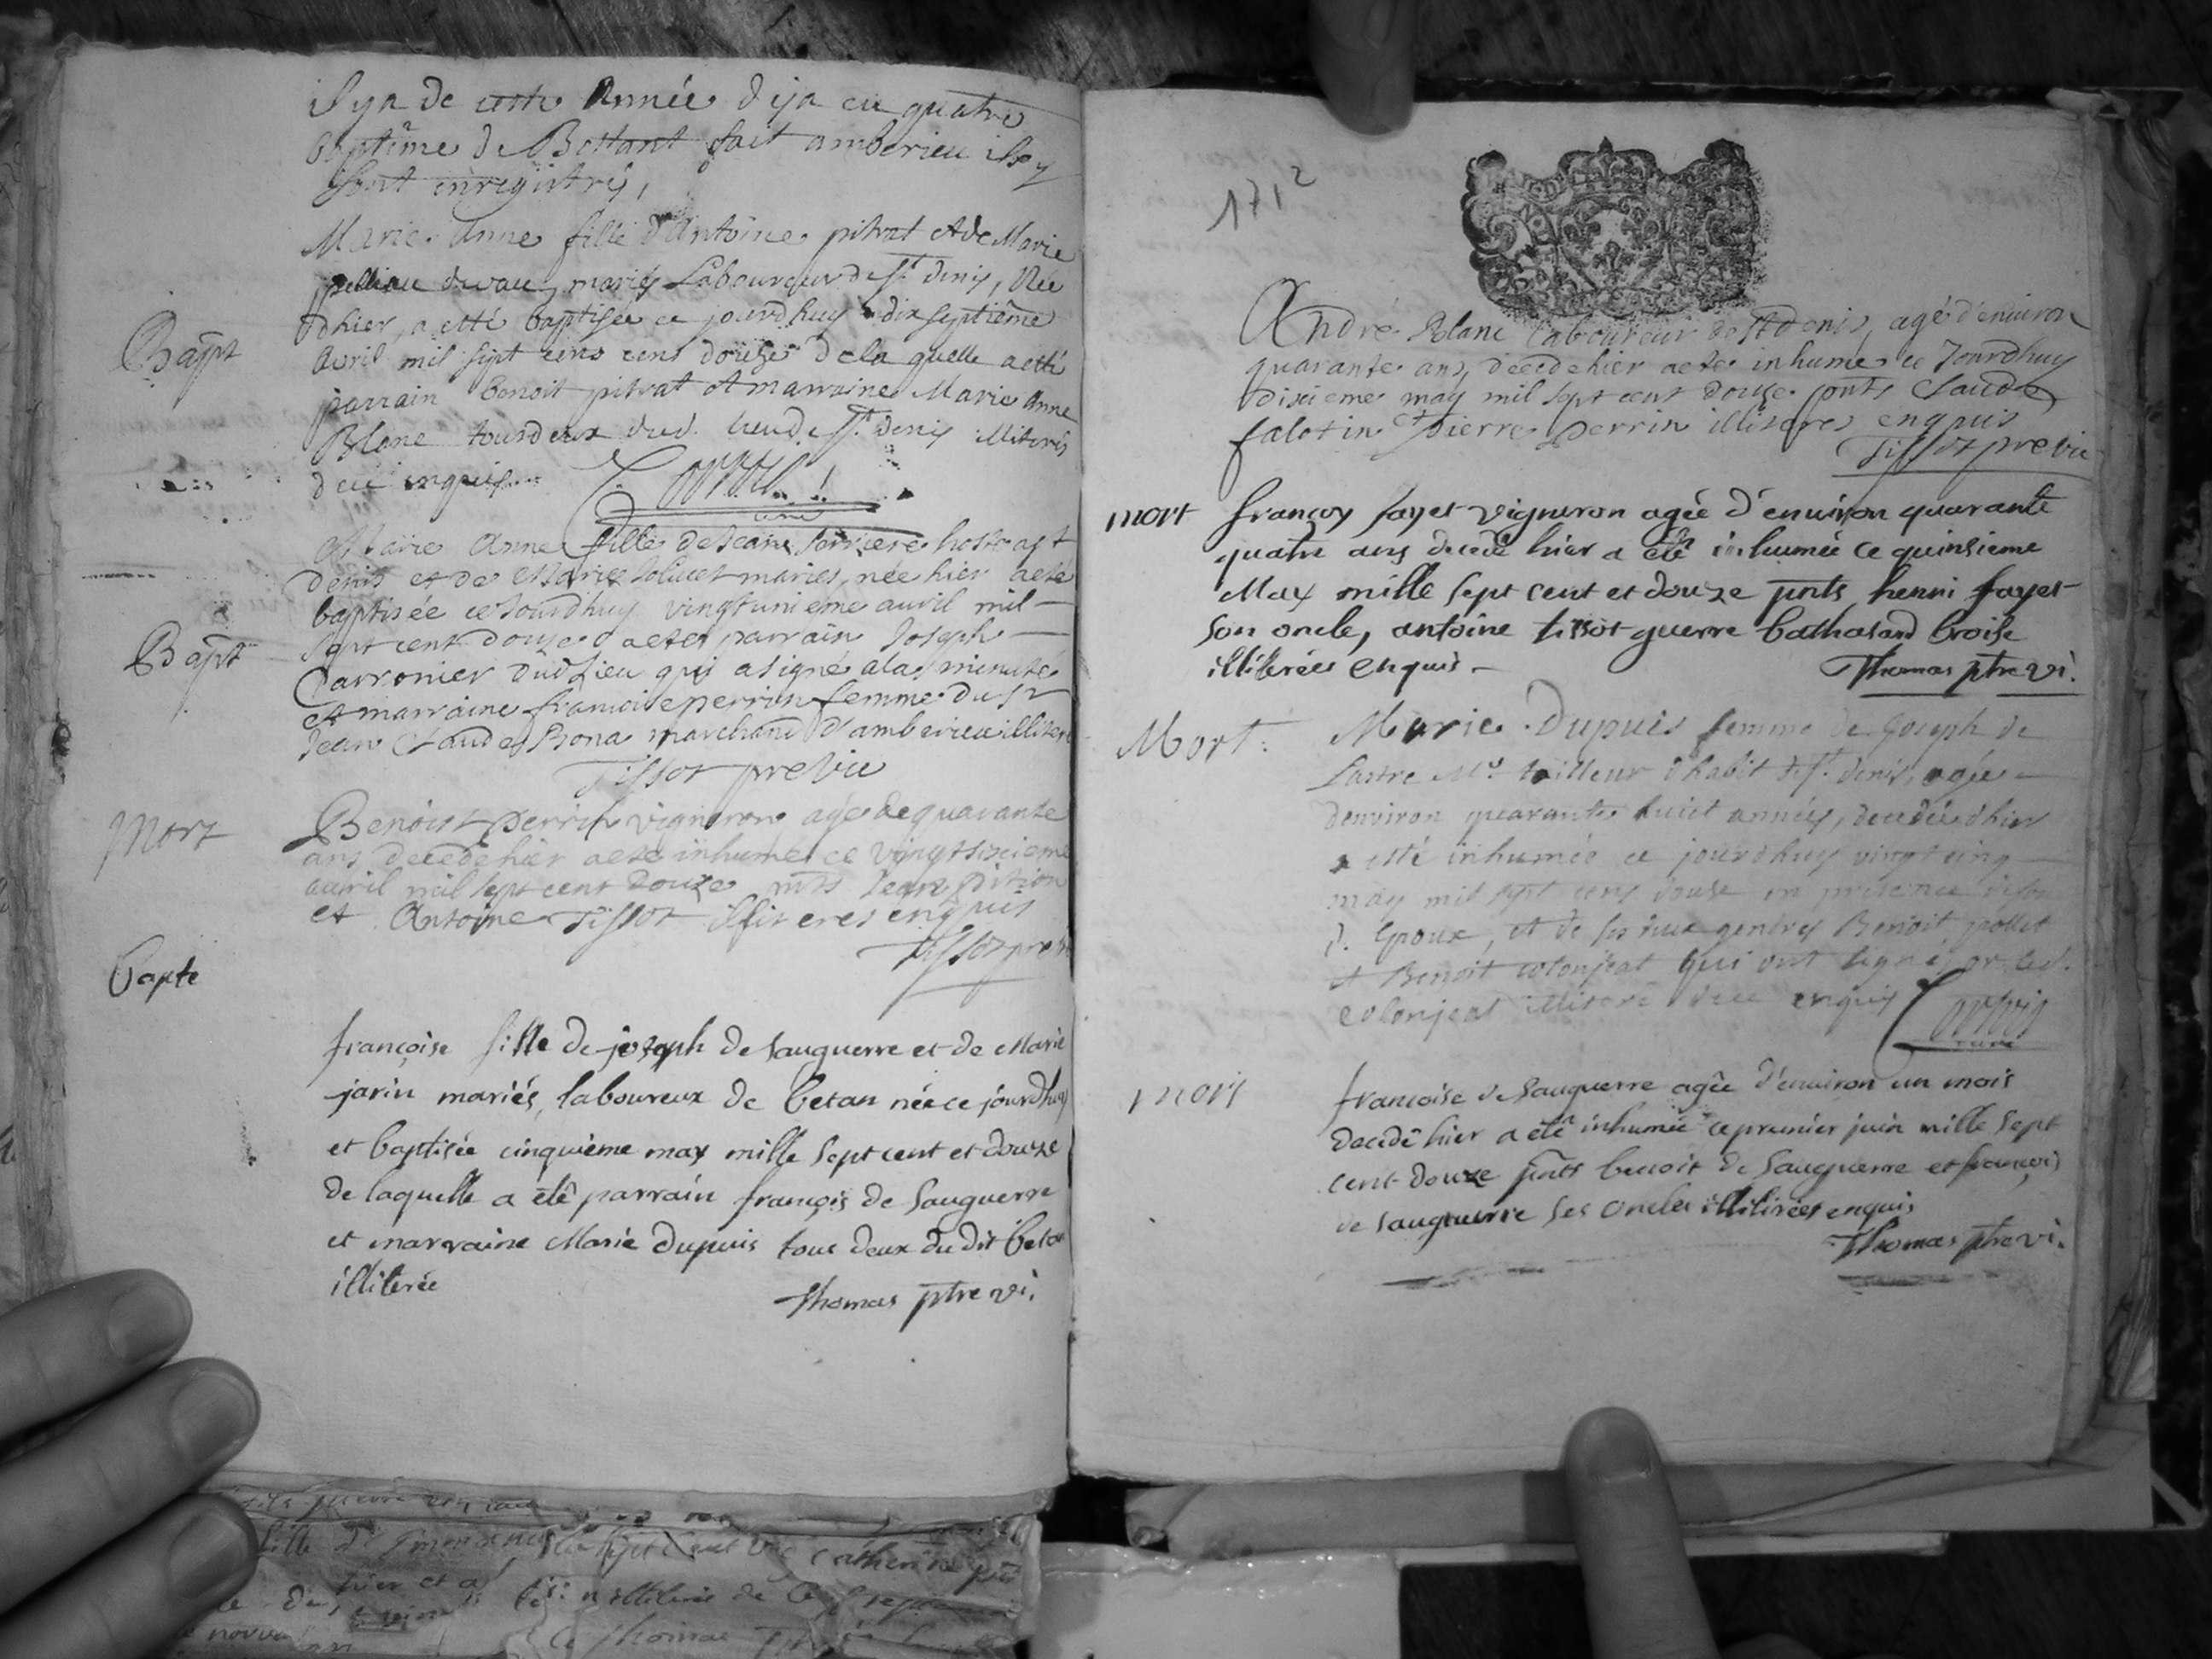 il y a de cette Année deja eu quatre
baptême de Bettant fait amberieu ils y
sont enregistrés,
Marie Anne fille d'Antoine pitrat et de Marie
mariés Laboureur de St denis, Née
dhier, a etté baptisée ce jourdhuy dix septième
Avril mil sept cens cens douze de la quelle a etté
parrain benoit pitrat et marraine Marie Anne
Blanc tous deux dud. lieu de St denis illiterés
Bapt
de ce enquis
Marie Anne fille de Jean hoste a st
denis et de Marie mariés, née hier a eté
baptisée ce Jourdhuy vingtunieme auril mil
Bapt
sept cent douze a eté parrain Joseph
Carronier dud Lieu qui a signé a la minute
et marraine francoise perrin femme du sr
Jean Claude Bona marchand d'amberieu illitere
Tissot pre vic
Mort
Benoist perrin vigneron agé de quarante
ans decede hier a eté inhumé ce vingtsixieme
auril mil sept cent douze pnts Jean
et Antoine Tissot illiteres enquis
Tissot pre
bapte
françoise fille de joseph de sauguerre et de Marie
jarin mariés, laboureux de betan née ce jourdhuy
et baptisée cinquième may mille sept cent et douze
de laquelle a été parrain françois de sauguerre
et marraine Marie dupuis tous deux du dit betan
illiterée
Thomas ptre vi.
1712
André Blanc laboureur de st denis, agé d'enuiron
quarante ans, decede hier a ete inhume ce Jourdhuy
dixieme may mil sept cent douze pnts Claude
falotin et pierre perrin illiteres enquis
Tissot pre vic
mort
françoy fayet vigneron agée d'enuiron quarante
quatre ans decedé hier a été inhumée ce quinsieme
May mille sept cent et douze pnts henri fayet
son oncle, antoine tissot guerre bathasard broise
illiterées enquis
Thomas ptre vi.
Mort.
Marie Dupuis femme de Joseph de
Lastre Me tailleur d'habit de St denis, agée
denviron quarante huict années, decedée d'hier
a etté inhumée ce jourdhuy vingt cinq
may mil sept cens douze en presence de son
d. Epoux, et de ses deux gendres Benoit pollet
et Benoit colonjeat qui ont signé, or led.
colonjeat illiteré de ce enquis
mort
francoise de sauguerre agée d'enuiron un mois
decedé hier a été inhumée ce premier juin mille sept
cent douze pnts benoit de sauguerre et françois
de sauguerre ses oncles illiterées enquis
Thomas ptre vi.